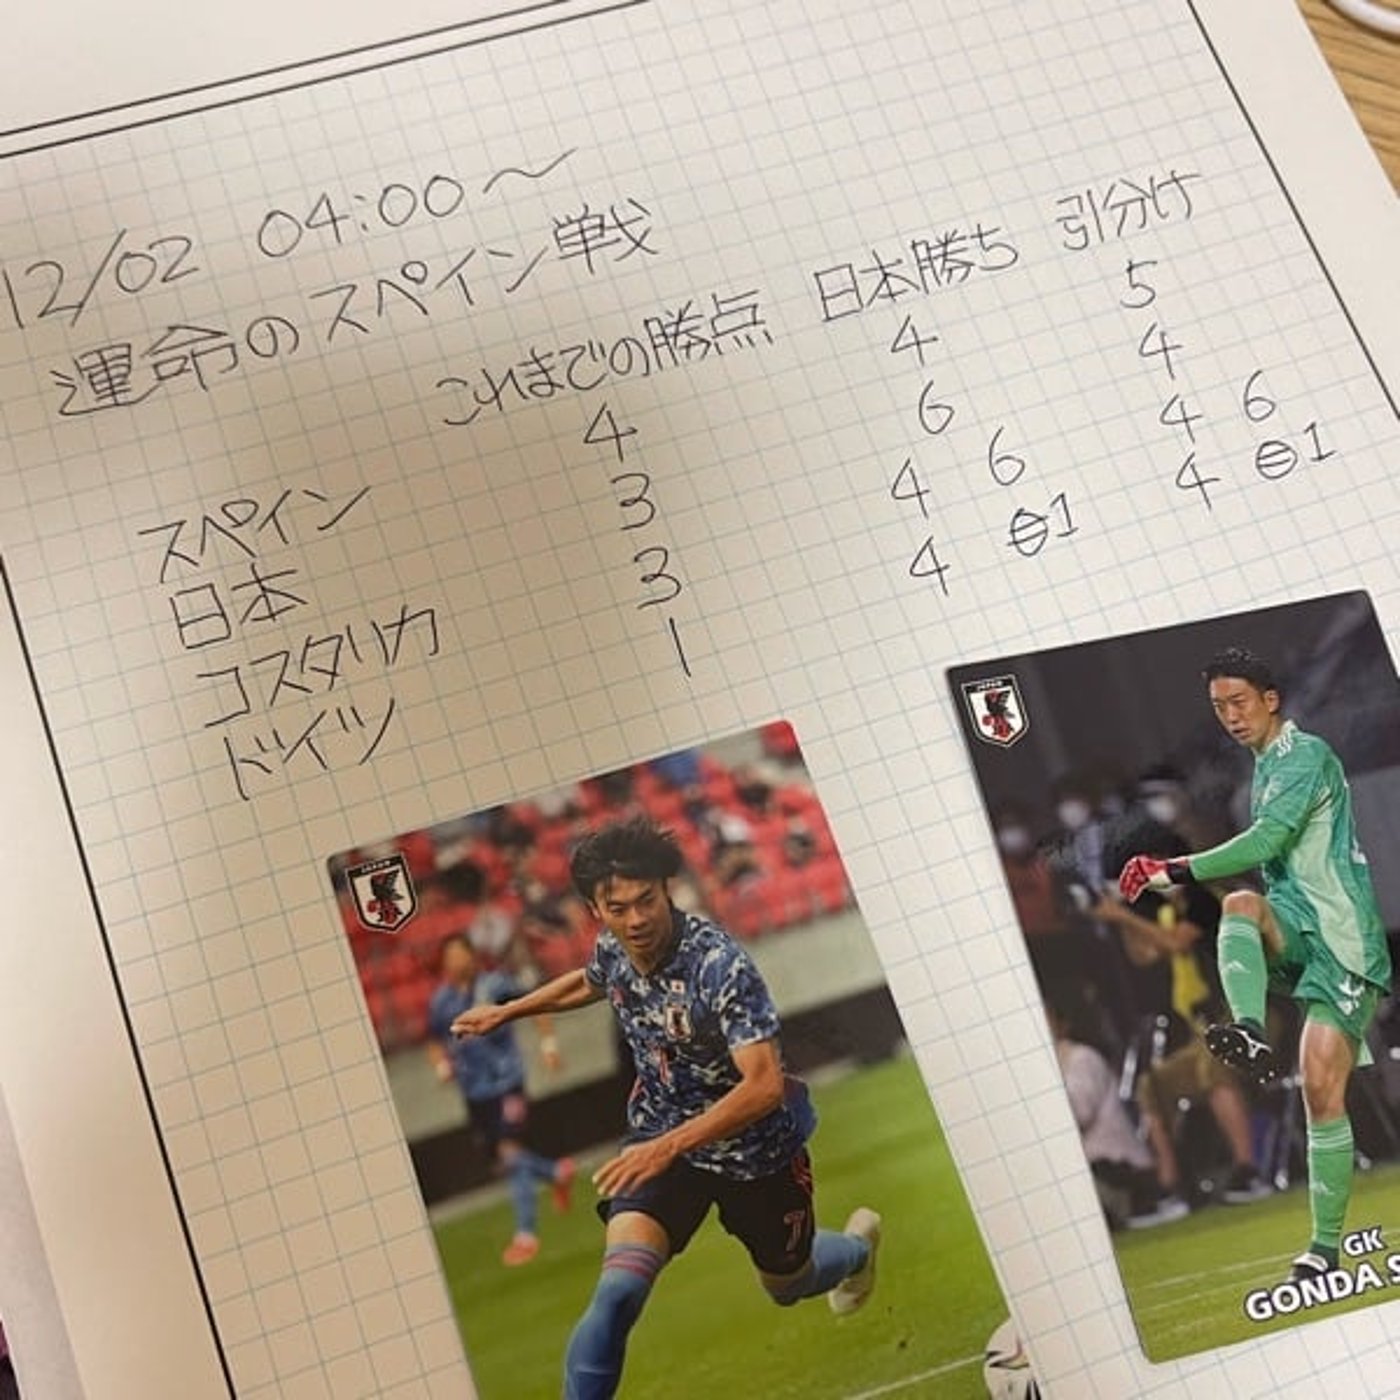 12/02 04:00〜
運命のスペイン戦
これまでの勝点 日本勝ち 引分け
スペイン 4 4 5
日本 3 6 4
コスタリカ 3 4 6 4 6
ドイツ 1 4 1 4 1
JAPAN
7
JAPAN
GK
GONDA S